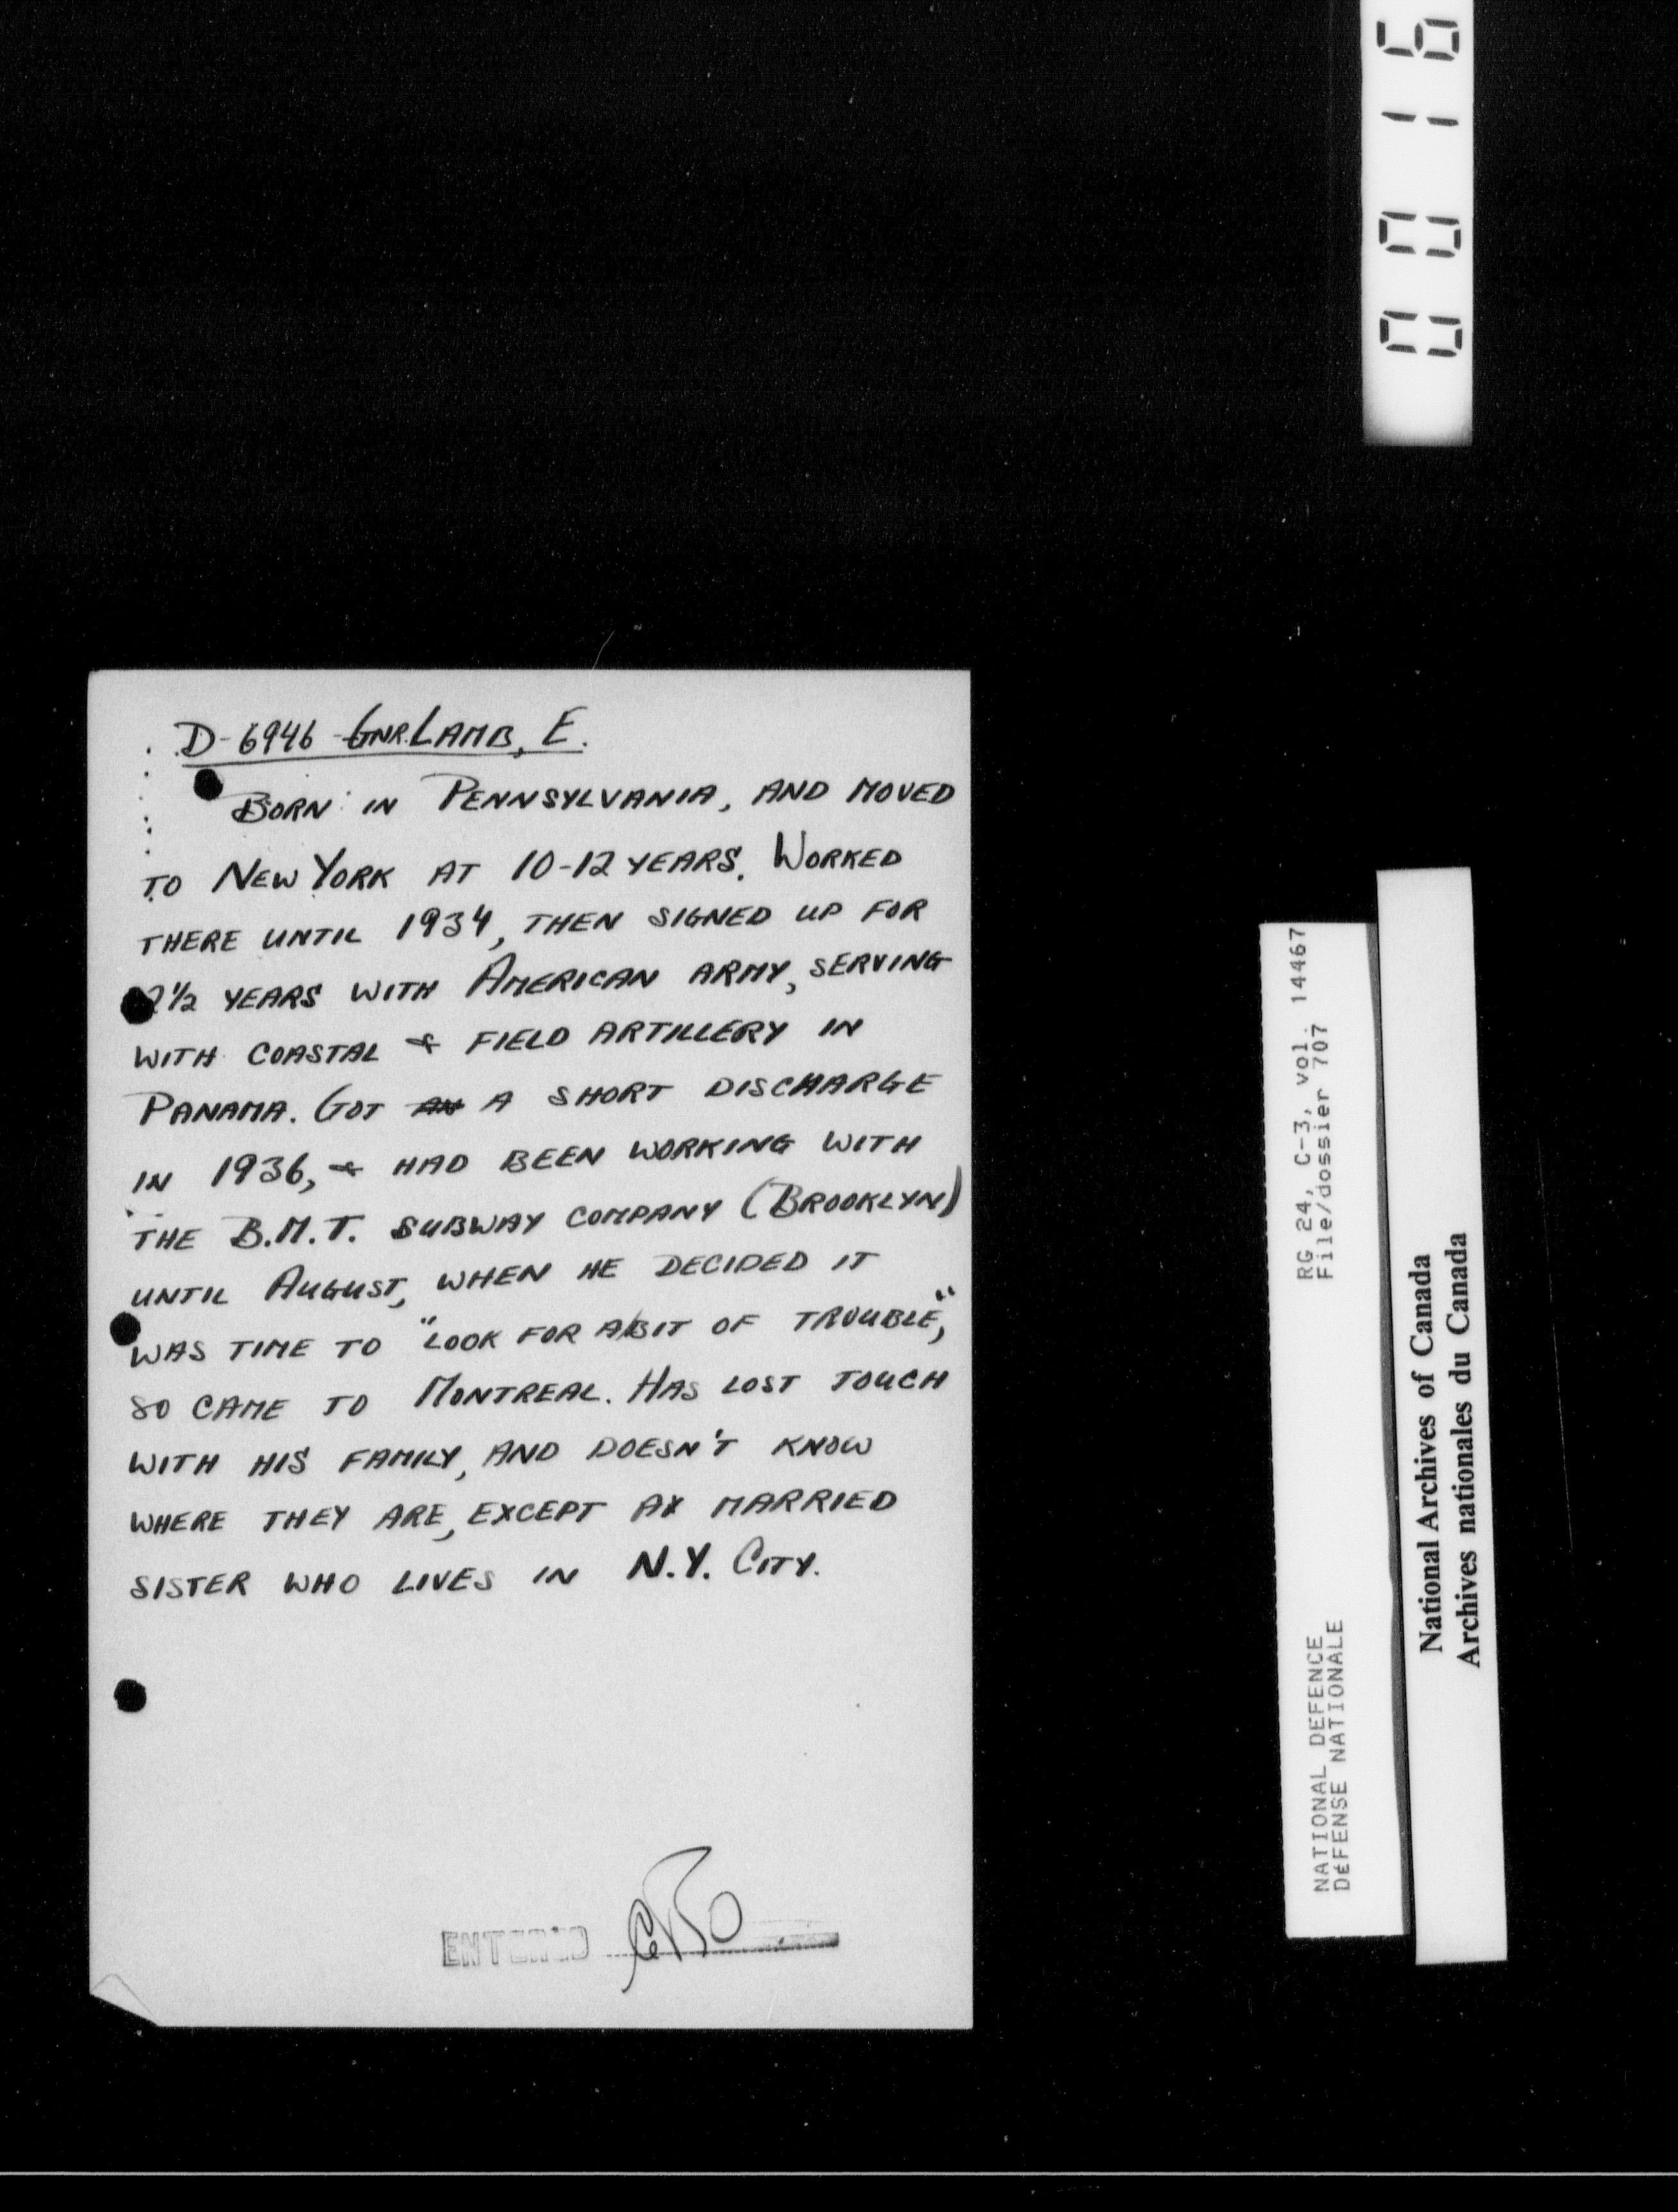 D-6946 GNR. LAMB, E.
BORN IN PENNSYLVANIA, AND MOVED
TO NEW YORK AT 10-12 YEARS. WORKED
THERE UNTIL 1934, THEN SIGNED UP FOR
2½ YEARS WITH AMERICAN ARMY, SERVING
WITH COASTAL & FIELD ARTILLERY IN
PANAMA. GOT AN A SHORT DISCHARGE
IN 1936, & HAD BEEN WORKING WITH
THE B.M.T. SUBWAY COMPANY (BROOKLYN)
UNTIL AUGUST, WHEN HE DECIDED IT
WAS TIME TO "LOOK FOR A BIT OF TROUBLE,"
SO CAME TO MONTREAL. HAS LOST TOUCH
WITH HIS FAMILY, AND DOESN'T KNOW
WHERE THEY ARE, EXCEPT A MARRIED
SISTER WHO LIVES IN N.Y. CITY.
ENTERED
0016
NATIONAL DEFENCE RG 24, C-3, vol. 14467
DéFENSE NATIONALE File/dossier 707
National Archives of Canada
Archives nationales du Canada